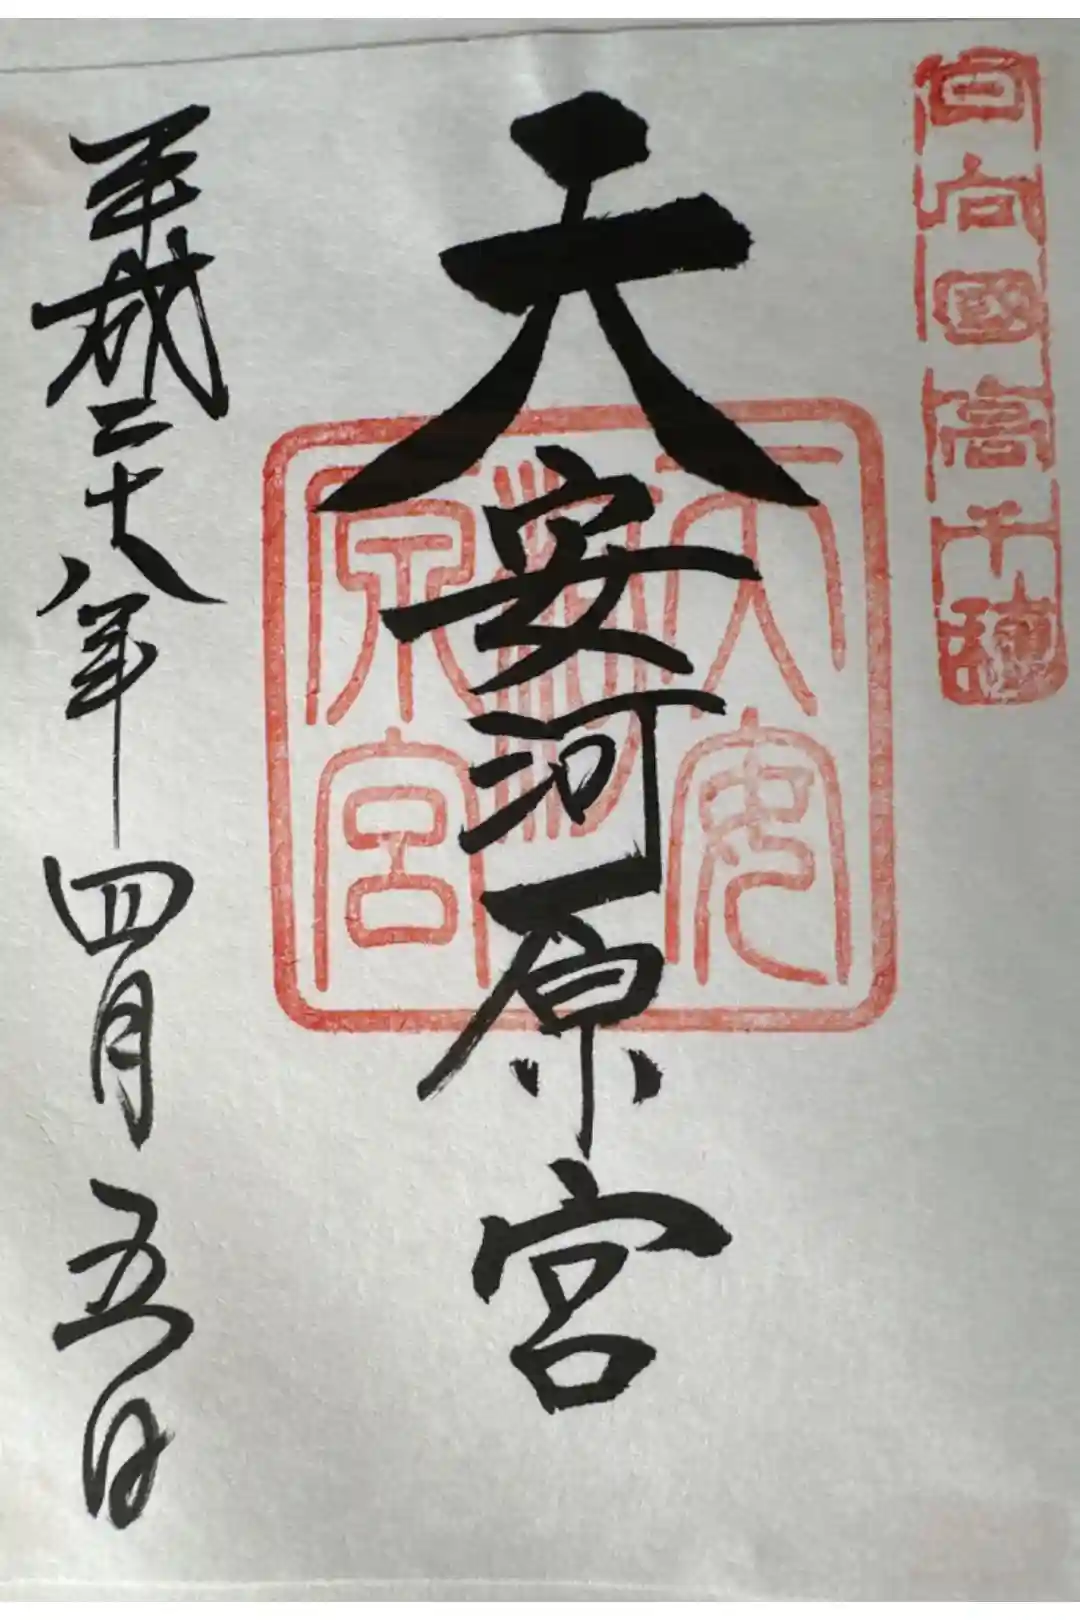 日向國高千穂
天安河原宮
天安河原宮
平成二十八年四月五日